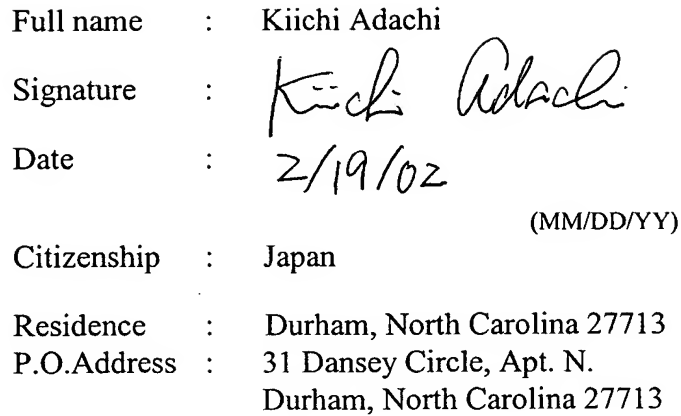 Full name : Kiichi Adachi
Signature : Kiichi Adachi
Date : 2/19/02
(MM/DD/YY)
Citizenship : Japan
Residence : Durham, North Carolina 27713
P.O.Address : 31 Dansey Circle, Apt. N.
Durham, North Carolina 27713